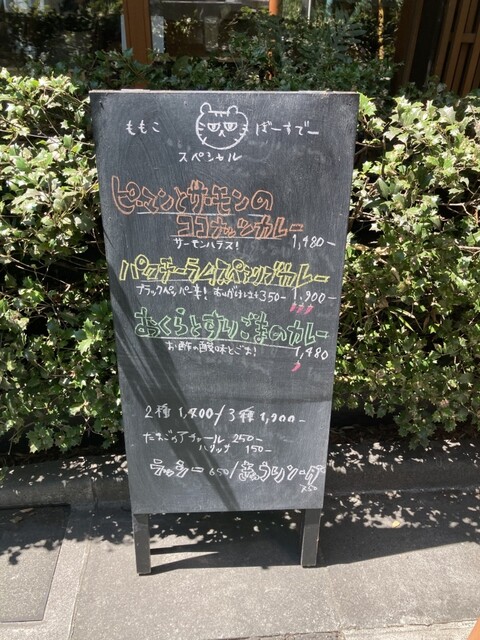 ももこ ばーすでー
スペシャル
ピーマンとサーモンの
ココナッツカレー
サーモンハラス! 1,480-
パクチーラムスペアリブカレー
ブラックペッパー来! 350- 1,900-
おくらとすりごまのカレー
お酢の酸味とごま! 1,480
2種 1,400/3種 1,900-
たまごのアチャール 250-
パクチ 150-
ラッシー 650/